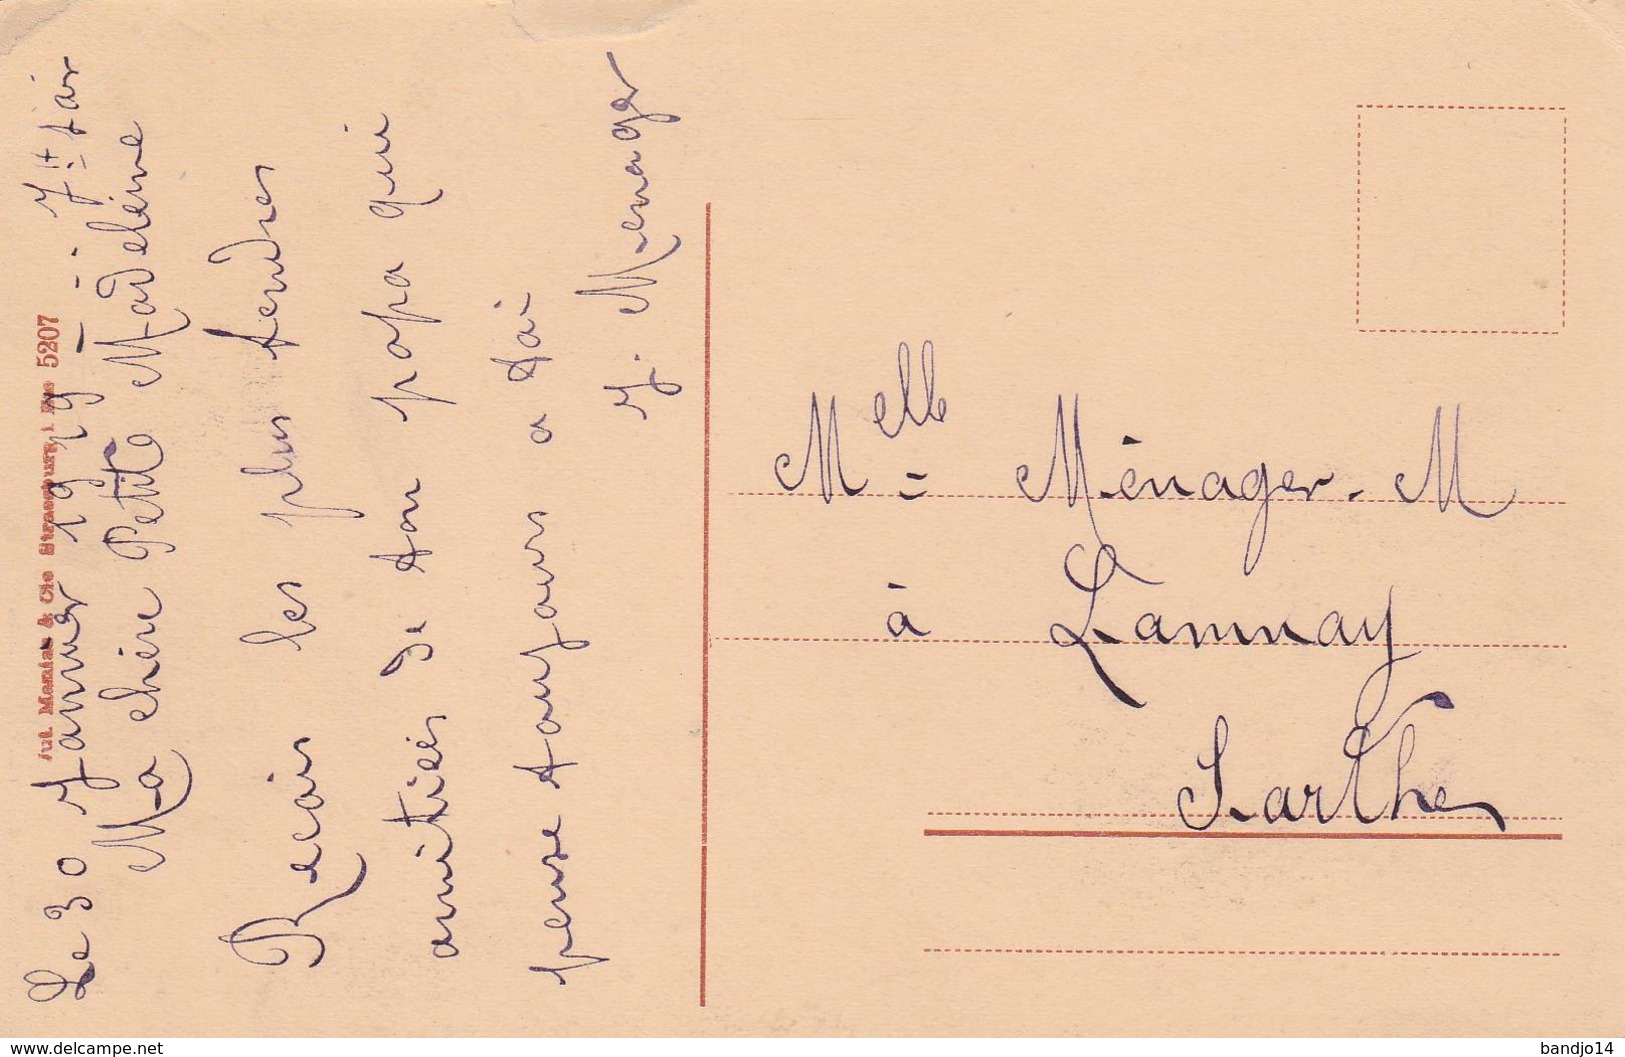 Le 30 Janvier 1919 -
Ma chère Petite Madeleine
Recois les plus tendres
amitiées de ton papa qui
pense toujours a toi
J. Menager
Aut. Manias & Cie Strasbourg 5207
Melle Ménager. M
à Lamnay
Sarthe
www.delcampe.net
bandjo14